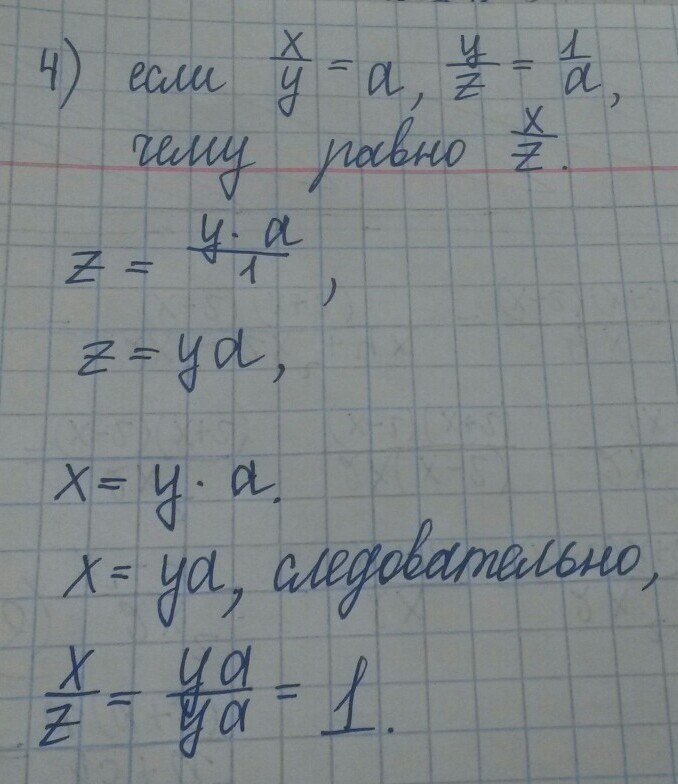 4) если x/y = a, y/z = 1/a,
чему равно x/z.
z = y · a/1,
z = ya,
x = y · a.
x = ya, следовательно,
x/z = ya/ya = 1.